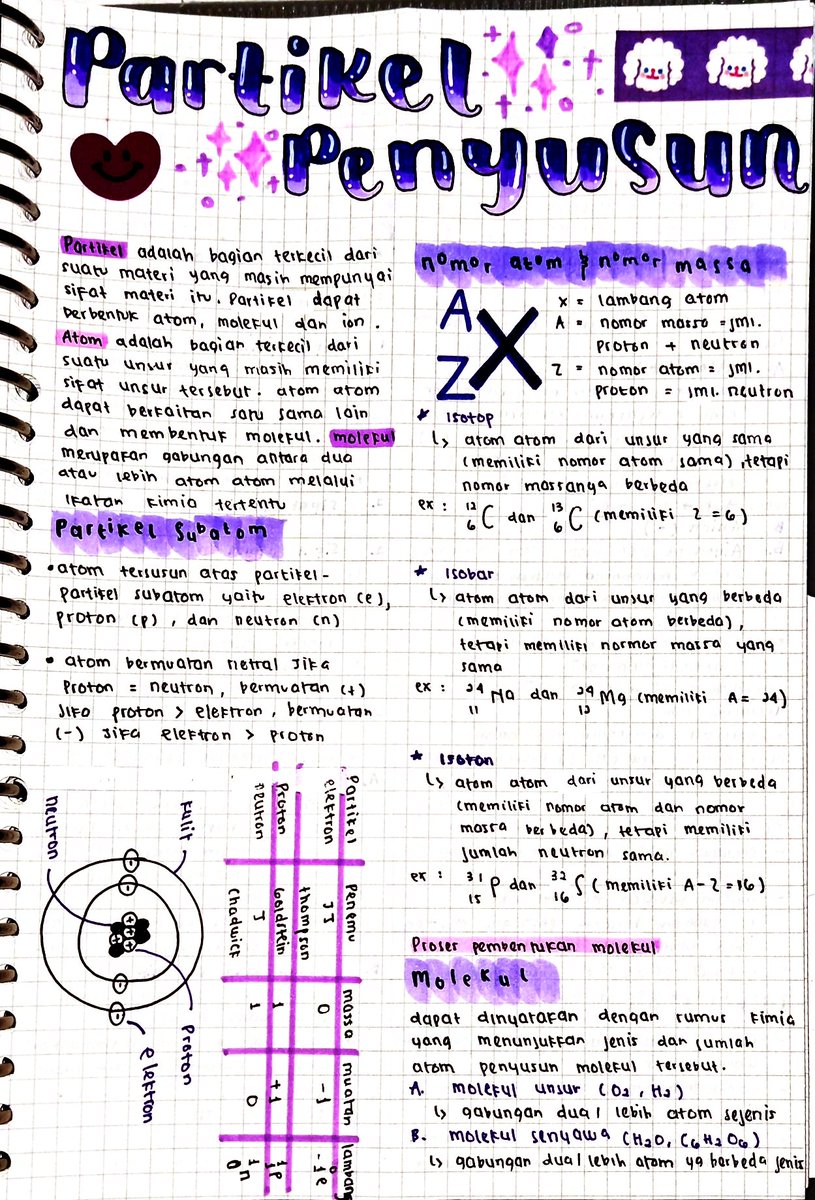 Partikel
Penyusun
Partikel adalah bagian terkecil dari
suatu materi yang masih mempunyai
sifat materi itu. Partikel dapat
berbentuk atom, molekul dan ion.
Atom adalah bagian terkecil dari
suatu unsur yang masih memiliki
sifat unsur tersebut. atom atom
dapat berkaitan satu sama lain
dan membentuk molekul. molekul
merupakan gabungan antara dua
atau lebih atom atom melalui
ikatan kimia tertentu
Partikel Subatom
• atom tersusun atas partikel-
partikel subatom yaitu elektron (e),
proton (p), dan neutron (n)
• atom bermuatan netral jika
proton = neutron, bermuatan (+)
jika proton > elektron, bermuatan
(-) jika elektron > proton
Partikel Penemu massa muatan lambang
elektron JJ thompson 0 -1 0 -1 e
Proton Goldstein 1 +1 1 1 p
neutron J chadwick 1 0 1 0 n
kulit
neutron
Proton
elektron
nomor atom & nomor massa
A
Z
X
x = lambang atom
A = nomor massa = jml.
proton + neutron
Z = nomor atom = jml.
proton = jml. neutron
* isotop
↳ atom atom dari unsur yang sama
(memiliki nomor atom sama), tetapi
nomor massanya berbeda
ex : 12 6 C dan 13 6 C (memiliki Z = 6)
* isobar
↳ atom atom dari unsur yang berbeda
(memiliki nomor atom berbeda),
tetapi memiliki normor massa yang
sama
ex : 24 11 Na dan 24 12 Mg (memiliki A = 24)
* isoton
↳ atom atom dari unsur yang berbeda
(memiliki nomor atom dan nomor
massa berbeda), tetapi memiliki
jumlah neutron sama.
ex : 31 15 P dan 32 16 S (memiliki A-Z = 16)
Proses pembentukan molekul
Molekul
dapat dinyatakan dengan rumus kimia
yang menunjukkan jenis dan jumlah
atom penyusun molekul tersebut.
A. molekul unsur (O2, H2)
↳ gabungan dua / lebih atom sejenis
B. molekul senyawa (H2O, C6H2O6)
↳ gabungan dua / lebih atom yg berbeda jenis